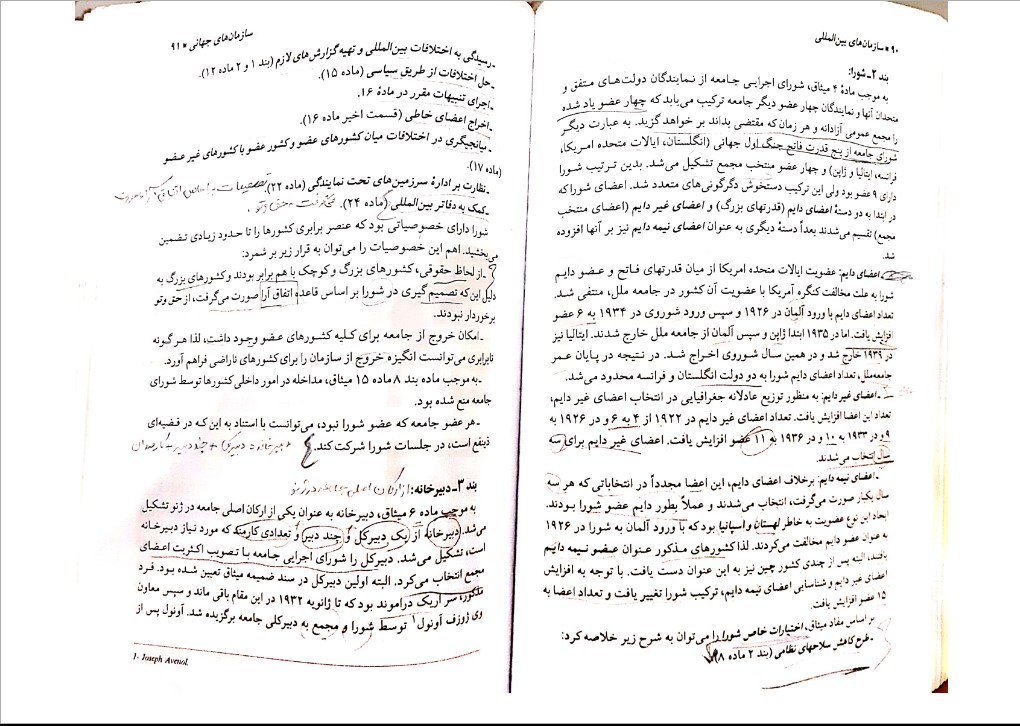 ۹۰ * سازمان‌های بین‌المللی
بند ۲ـ شورا:
به موجب مادهٔ ۴ میثاق، شورای اجرایی جامعه از نمایندگان دولت‌های متفق و
متحدان آنها و نمایندگان چهار عضو دیگر جامعه ترکیب می‌یابد که چهار عضو یاد شده
را مجمع عمومی آزادانه و هر زمان که مقتضی بداند بر خواهد گزید. به عبارت دیگر
شورای جامعه از پنج قدرت فاتح جنگ اول جهانی (انگلستان، ایالات متحده امریکا،
فرانسه، ایتالیا و ژاپن) و چهار عضو منتخب مجمع تشکیل می‌شد. بدین ترتیب شورا
دارای ۹ عضو بود ولی این ترکیب دستخوش دگرگونی‌های متعدد شد. اعضای شورا که
در ابتدا به دو دستهٔ اعضای دایم (قدرتهای بزرگ) و اعضای غیر دایم (اعضای منتخب
مجمع) تقسیم می‌شدند بعداً دستهٔ دیگری به عنوان اعضای نیمه دایم نیز بر آنها افزوده
شد.
ـ اعضای دایم: عضویت ایالات متحده امریکا از میان قدرتهای فاتح و عضو دایم
شورا به علت مخالفت کنگره آمریکا با عضویت آن کشور در جامعه ملل، منتفی شد.
تعداد اعضای دایم با ورود آلمان در ۱۹۲۶ و سپس ورود شوروی در ۱۹۳۴ به ۶ عضو
افزایش یافت. اما در ۱۹۳۵ ابتدا ژاپن و سپس آلمان از جامعه ملل خارج شدند. ایتالیا نیز
در ۱۹۳۹ خارج شد و در همین سال شوروی اخراج شد. در نتیجه در پایان عمر
جامعه‌ملل، تعداد اعضای دایم شورا به دو دولت انگلستان و فرانسه محدود می‌شد.
ـ اعضای غیر دایم: به منظور توزیع عادلانه جغرافیایی در انتخاب اعضای غیر دایم،
تعداد این اعضا افزایش یافت. تعداد اعضای غیر دایم در ۱۹۲۲ از ۴ به ۶ و در ۱۹۲۶ به
۹ و در ۱۹۳۳ به ۱۰ و در ۱۹۳۶ به ۱۱ عضو افزایش یافت. اعضای غیر دایم برای سه
سال انتخاب می‌شدند.
ـ اعضای نیمه دایم: برخلاف اعضای دایم، این اعضا مجدداً در انتخاباتی که هر سه
سال یکبار صورت می‌گرفت، انتخاب می‌شدند و عملاً بطور دایم عضو شورا بودند.
ایجاد این نوع عضویت به خاطر لهستان و اسپانیا بود که با ورود آلمان به شورا در ۱۹۲۶
به عنوان عضو دایم مخالفت می‌کردند. لذا کشورهای مذکور عنوان عضو نیمه دایم
یافتند، البته پس از چندی کشور چین نیز به این عنوان دست یافت. با توجه به افزایش
اعضای غیر دایم و شناسایی اعضای نیمه دایم، ترکیب شورا تغییر یافت و تعداد اعضا به
۱۵ عضو افزایش یافت.
بر اساس مفاد میثاق، اختیارات خاص شورا را می‌توان به شرح زیر خلاصه کرد:
ـ طرح کاهش سلاحهای نظامی (بند ۲ ماده ۸).
سازمان‌های جهانی * ۹۱
ـ رسیدگی به اختلافات بین‌المللی و تهیه گزارش‌های لازم (بند ۱ و ۲ ماده ۱۲).
ـ حل اختلافات از طریق سیاسی (ماده ۱۵).
ـ اجرای تنبیهات مقرر در مادهٔ ۱۶.
ـ اخراج اعضای خاطی (قسمت اخیر ماده ۱۶).
ـ میانجیگری در اختلافات میان کشورهای عضو و کشور عضو با کشورهای غیر عضو
(ماده ۱۷).
ـ نظارت بر ادارهٔ سرزمین‌های تحت نمایندگی (ماده ۲۲). تصمیمات بر اساس اتفاق آرا صورت
ـ کمک به دفاتر بین‌المللی (ماده ۲۴). میگرفت
شورا دارای خصوصیاتی بود که عنصر برابری کشورها را تا حدود زیادی تضمین
می‌بخشید. اهم این خصوصیات را می‌توان به قرار زیر بر شمرد:
ـ از لحاظ حقوقی، کشورهای بزرگ و کوچک با هم برابر بودند و کشورهای بزرگ به
دلیل این که تصمیم گیری در شورا بر اساس قاعده اتفاق آرا صورت می‌گرفت، از حق وتو
برخوردار نبودند.
ـ امکان خروج از جامعه برای کلیه کشورهای عضو وجود داشت، لذا هر گونه
نابرابری می‌توانست انگیزه خروج از سازمان را برای کشورهای ناراضی فراهم آورد.
ـ به موجب ماده بند ۸ ماده ۱۵ میثاق، مداخله در امور داخلی کشورها توسط شورای
جامعه منع شده بود.
ـ هر عضو جامعه که عضو شورا نبود، می‌توانست با استناد به این که در قضیه‌ای
ذینفع است، در جلسات شورا شرکت کند.
بند ۳ـ دبیرخانه: از ارکان اصلی جامعه در ژنو
به موجب ماده ۶ میثاق، دبیرخانه به عنوان یکی از ارکان اصلی جامعه در ژنو تشکیل
می‌شد. دبیرخانه از یک دبیرکل و چند دبیر و تعدادی کارمند که مورد نیاز دبیرخانه
است، تشکیل می‌شد. دبیرکل را شورای اجرایی جامعه با تصویب اکثریت اعضای
مجمع انتخاب می‌کرد. البته اولین دبیرکل در سند ضمیمه میثاق تعیین شده بود. فرد
مذکور، سر اریک دراموند بود که تا ژانویه ۱۹۳۲ در این مقام باقی ماند و سپس معاون
وی ژوزف آونول۱ توسط شورا و مجمع به دبیرکلی جامعه برگزیده شد. آونول پس از
1- Joseph Avenol.